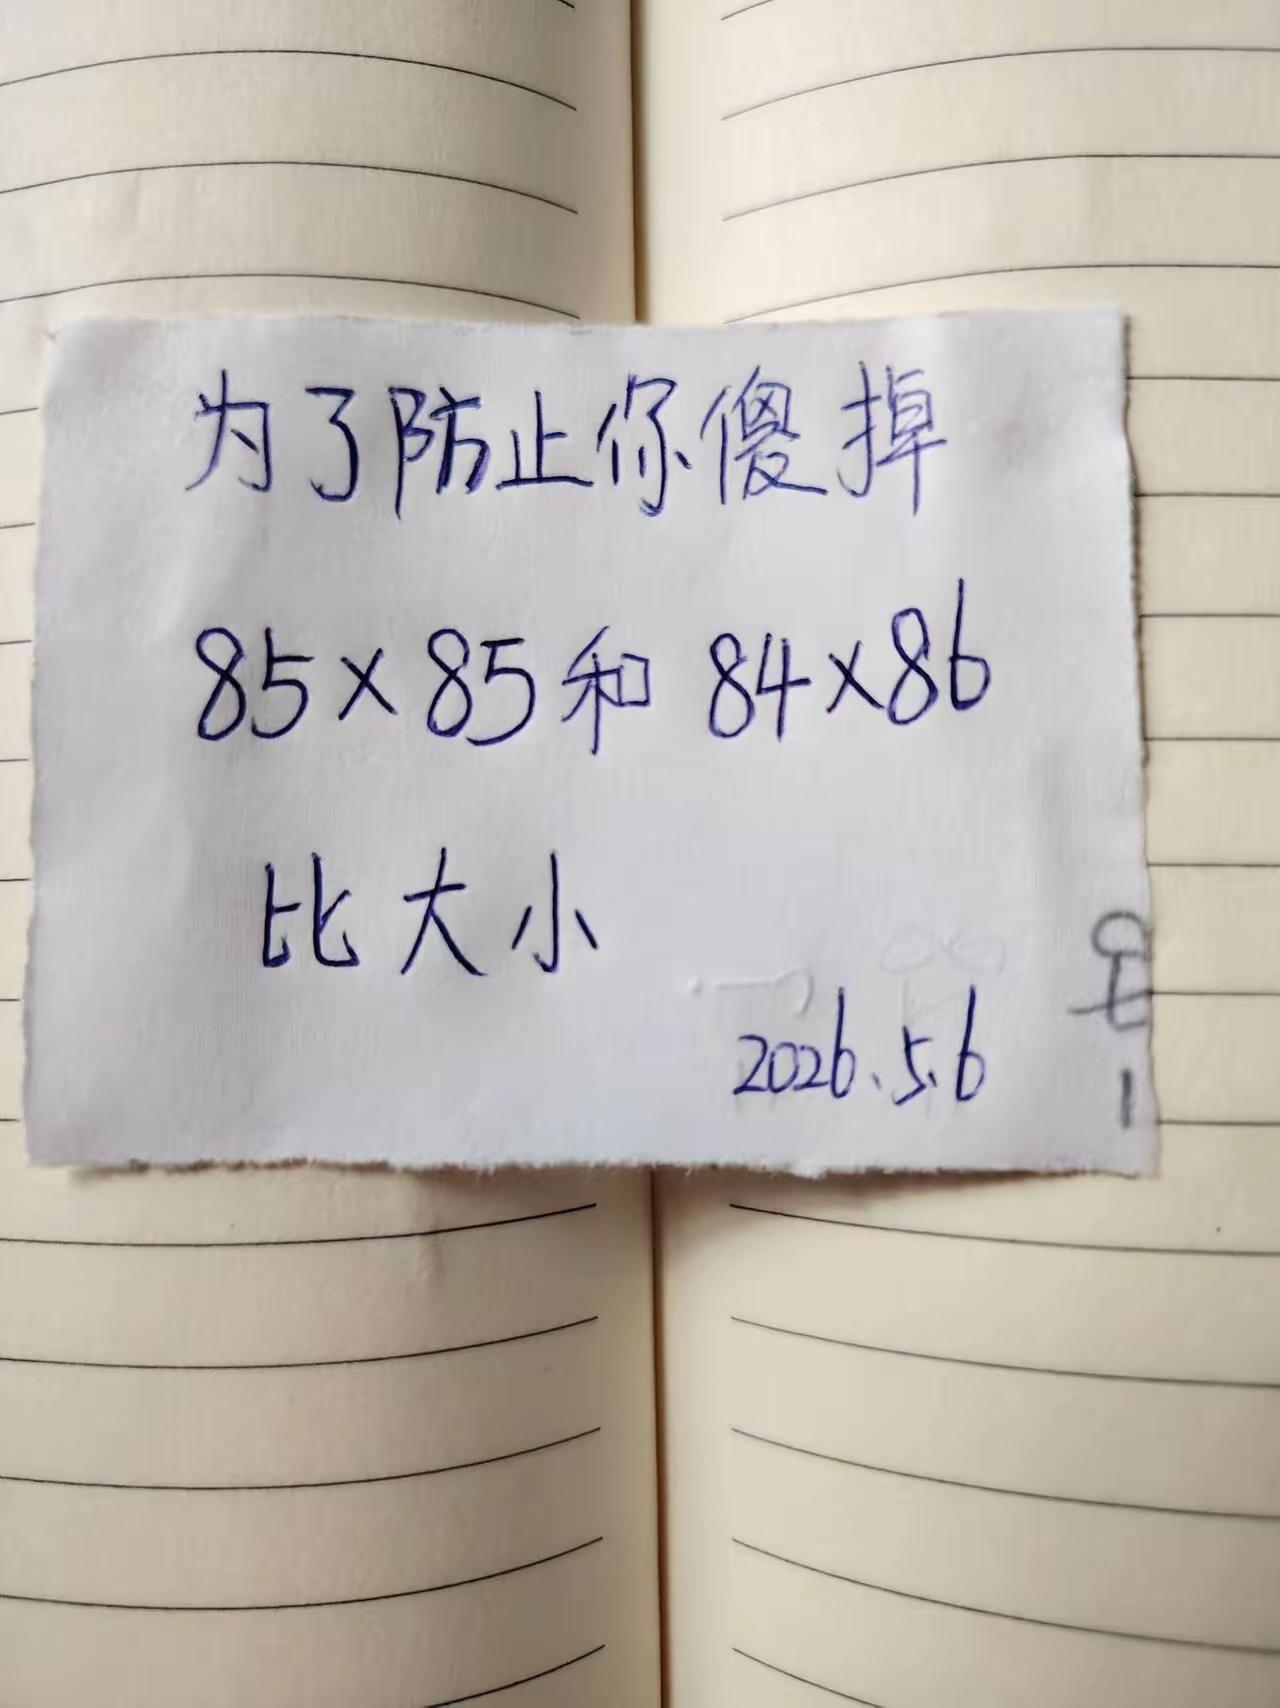 为了防止你傻掉
85×85和84×86
比大小
2026.5.6